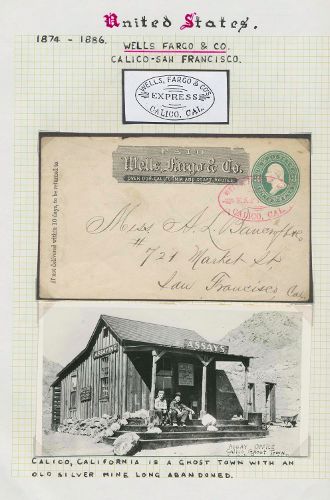 United States.
1874 - 1886.
WELLS FARGO & CO.
CALICO-SAN FRANCISCO.
WELLS, FARGO & CO'S
EXPRESS
CALICO, CAL.
If not delivered within 10 days, to be returned to
PAID
Wells, Fargo & Co.
OVER OUR CALIFORNIA AND COAST ROUTES.
CALICO, CAL.
Miss A. L. Bancroft & Co
# 721 Market St
San Francisco Cal
ASSAYS
ASSAY OFFICE
CALICO, GHOST TOWN.
CALICO, CALIFORNIA IS A GHOST TOWN WITH AN
OLD SILVER MINE LONG ABANDONED.